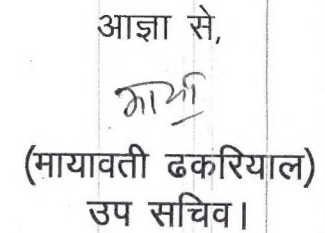 आज्ञा से,
माया
(मायावती ढकरियाल)
उप सचिव।